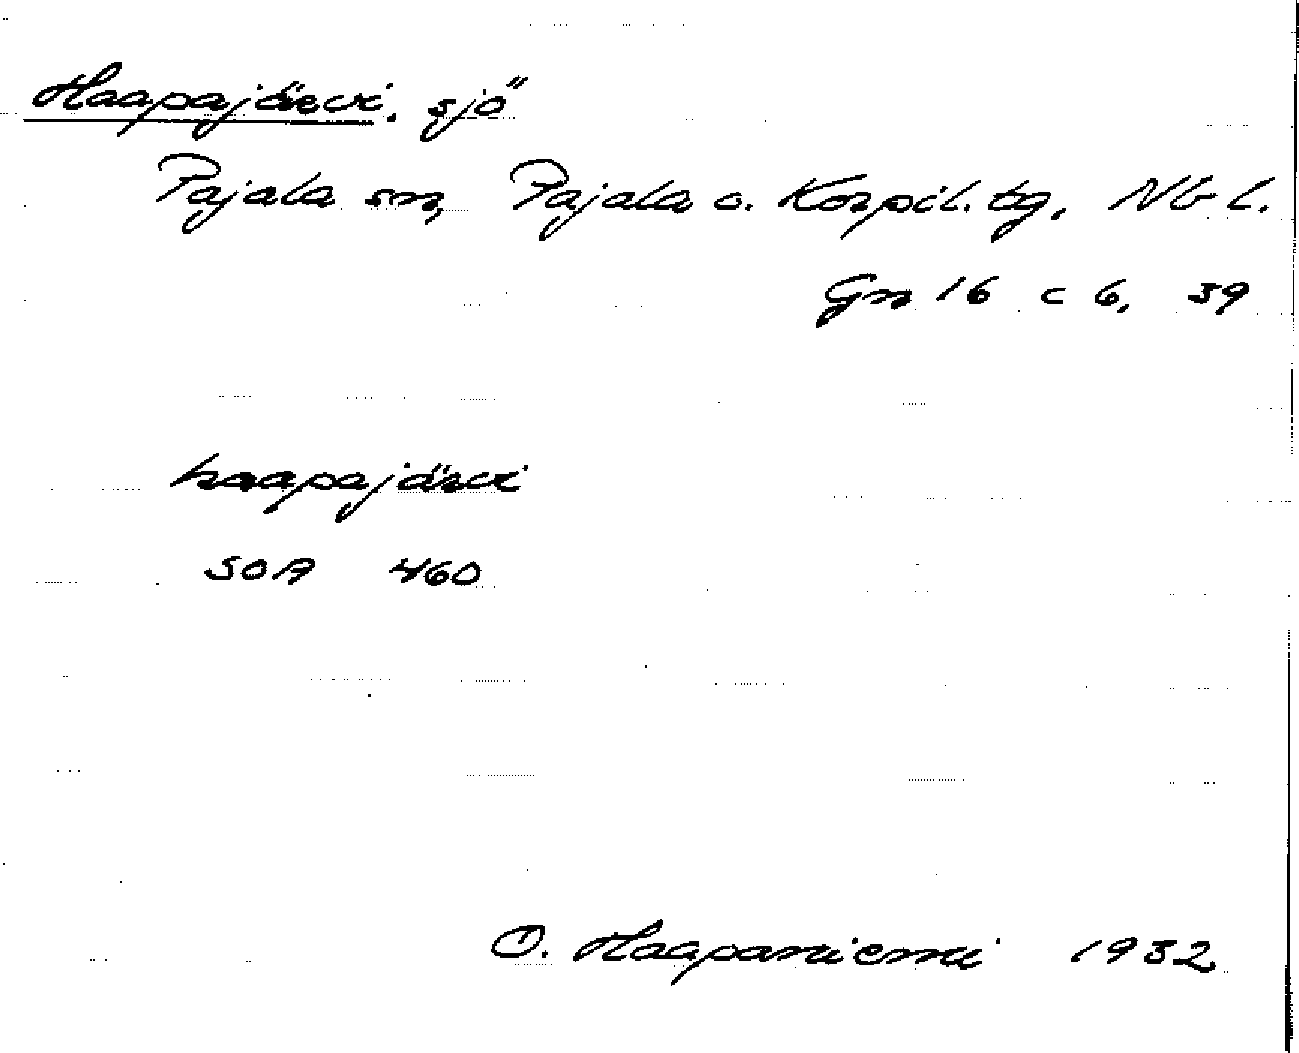 Haapajärvi, sjö
Pajala sn, Pajala o. Korpil. tg, Nb l.
Gn 16 c 6, 39
haapajärvi
SOA 460
O. Haapaniemi 1932